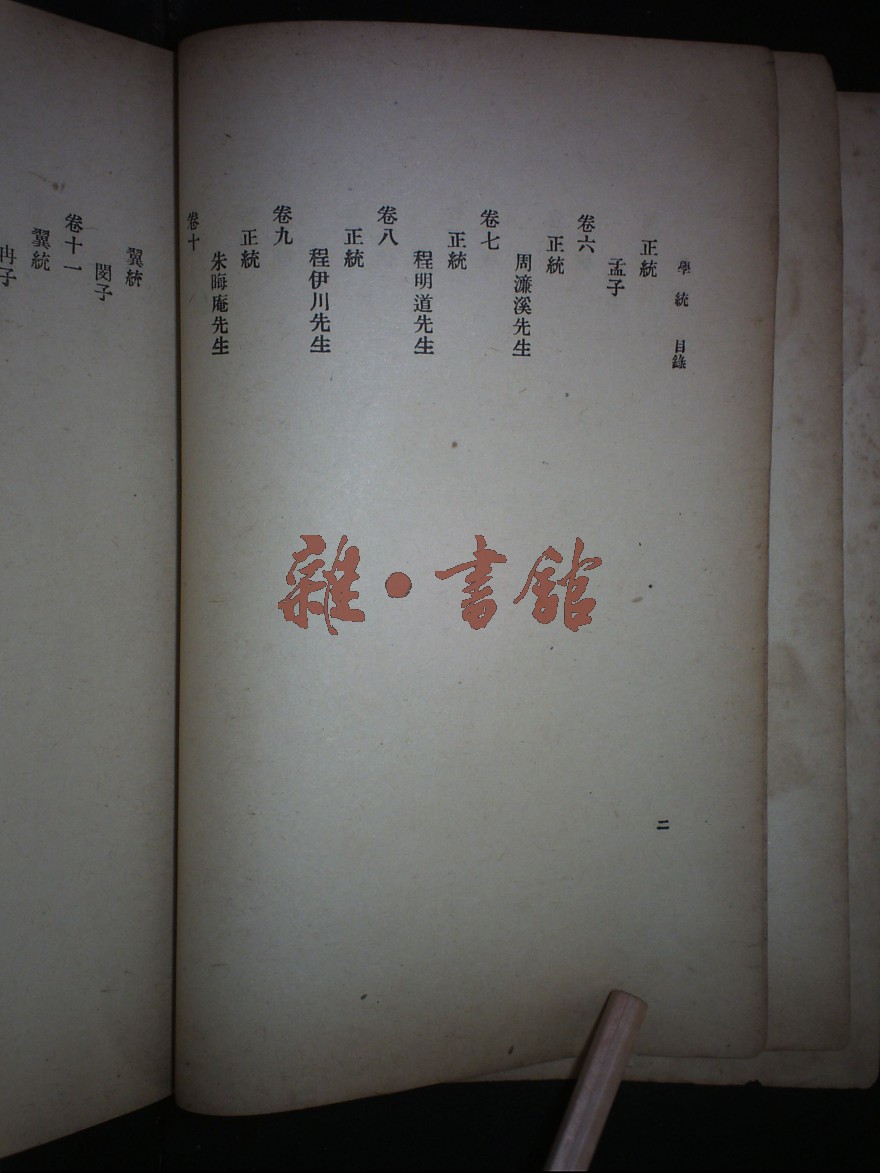 學統 目錄
正統
孟子
卷六
正統
周濂溪先生
卷七
正統
程明道先生
卷八
正統
程伊川先生
卷九
正統
朱晦庵先生
卷十
二
翼統
閔子
卷十一
翼統
冉子
雜·書館